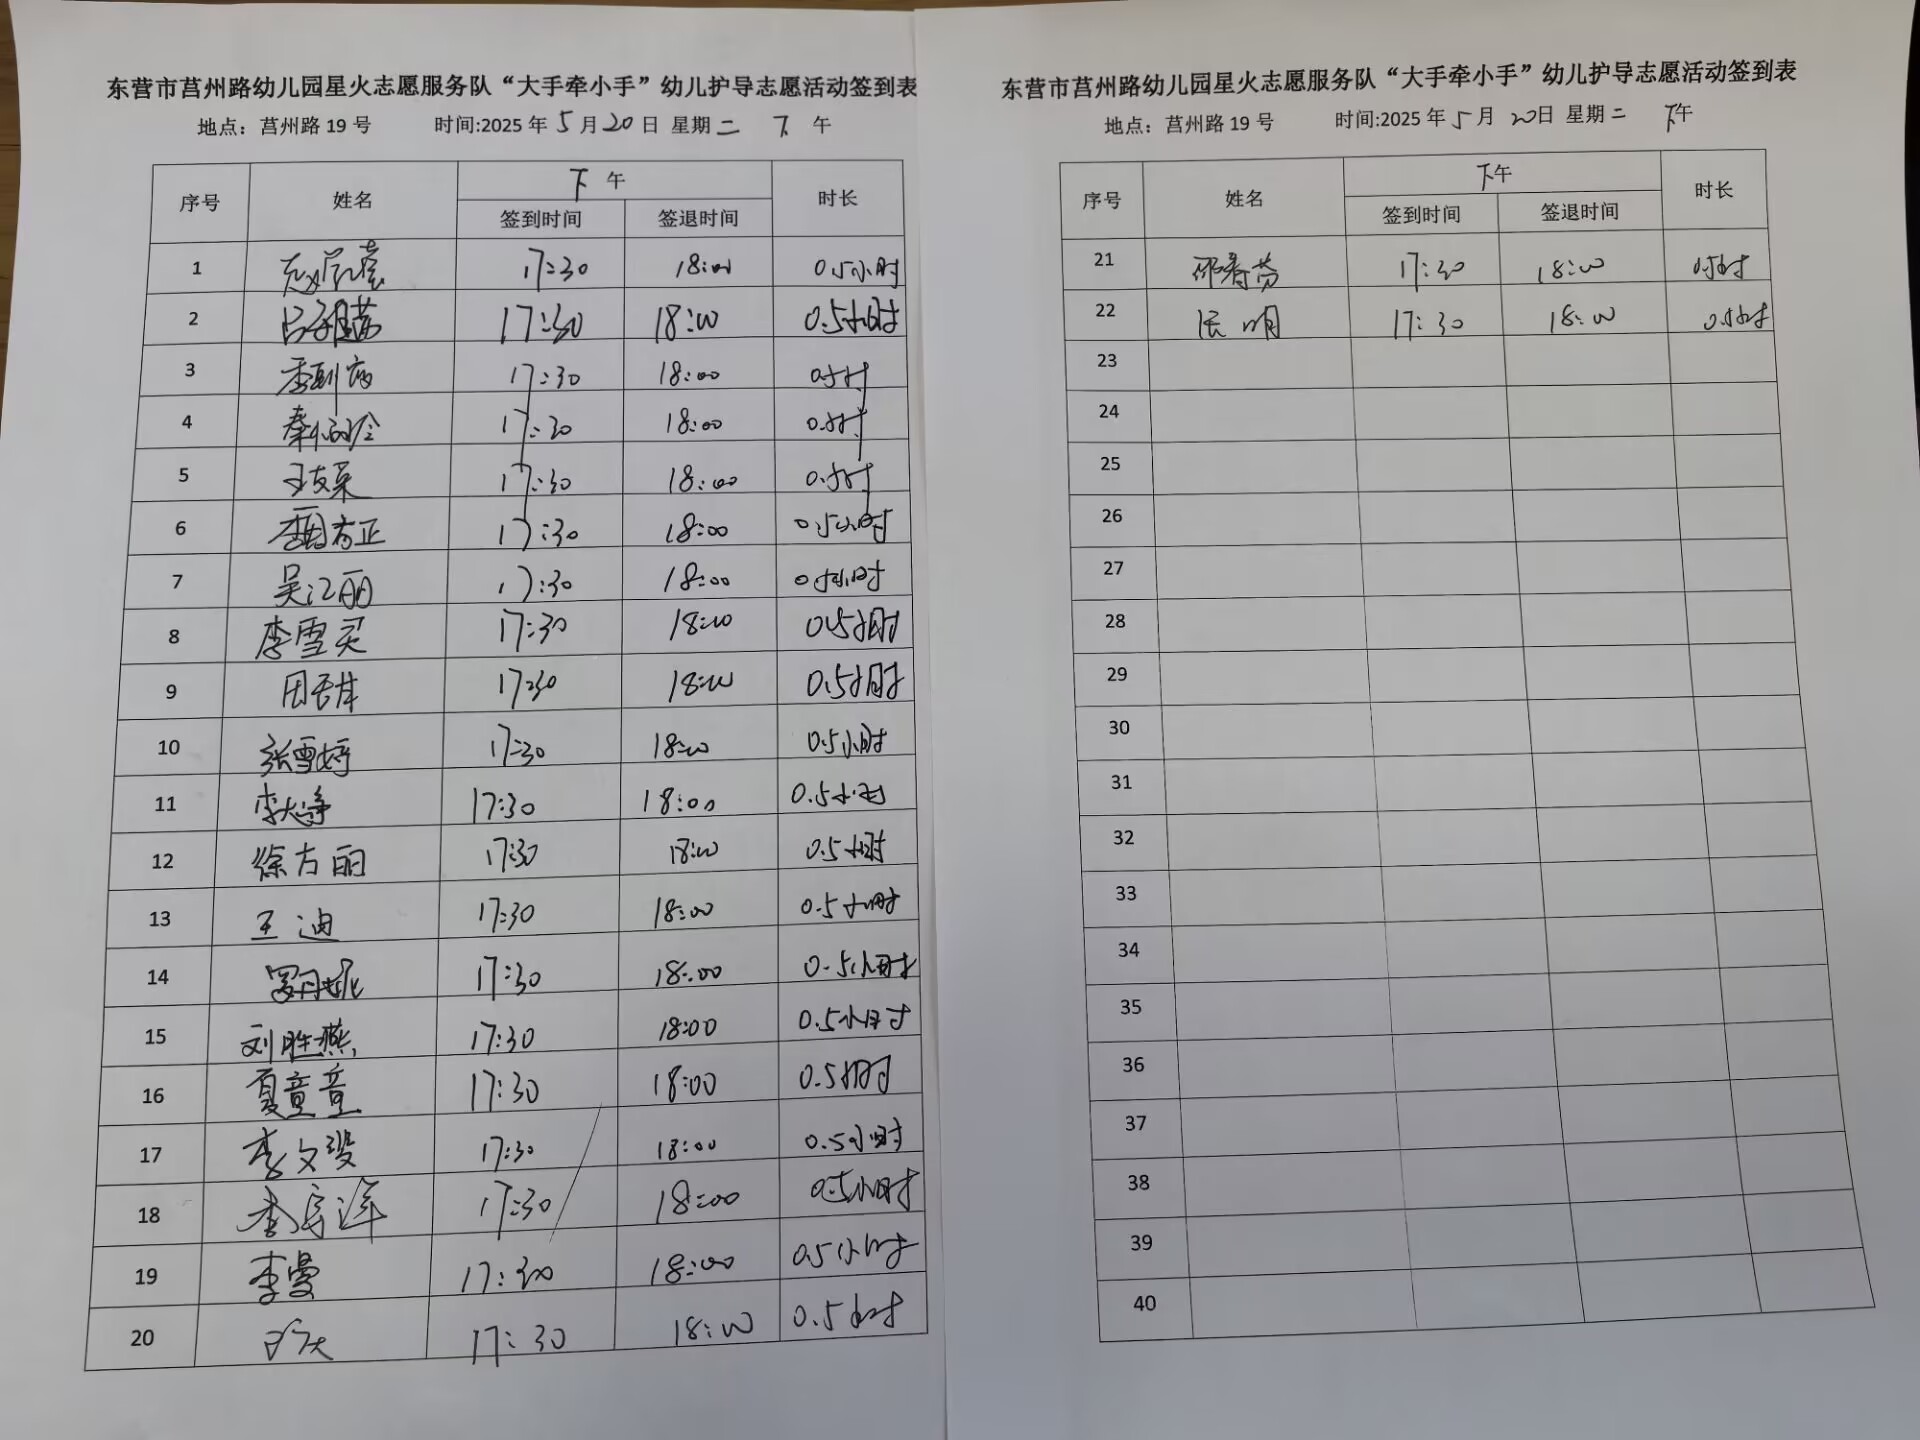 东营市莒州路幼儿园星火志愿服务队“大手牵小手”幼儿护导志愿活动签到表
地点：莒州路 19 号 时间:2025 年 5 月 20 日 星期 二 下 午
序号 姓名 下 午 时长
签到时间 签退时间
1 17:30 18:00 0.5小时
2 17:30 18:00 0.5小时
3 17:30 18:00 0.5小时
4 17:30 18:00 0.5小时
5 17:30 18:00 0.5小时
6 17:30 18:00 0.5小时
7 吴江丽 17:30 18:00 0.5小时
8 李雪 17:30 18:00 0.5小时
9 17:30 18:00 0.5小时
10 张雪婷 17:30 18:00 0.5小时
11 17:30 18:00 0.5小时
12 徐方丽 17:30 18:00 0.5小时
13 王迪 17:30 18:00 0.5小时
14 罗丹妮 17:30 18:00 0.5小时
15 刘胜燕 17:30 18:00 0.5小时
16 夏童童 17:30 18:00 0.5小时
17 李文 17:30 18:00 0.5小时
18 17:30 18:00 0.5小时
19 李曼 17:30 18:00 0.5小时
20 17:30 18:00 0.5小时
东营市莒州路幼儿园星火志愿服务队“大手牵小手”幼儿护导志愿活动签到表
地点：莒州路 19 号 时间:2025 年 5 月 20日 星期 二 下午
序号 姓名 下午 时长
签到时间 签退时间
21 邵春芳 17:30 18:00 0.5小时
22 17:30 18:00 0.5小时
23
24
25
26
27
28
29
30
31
32
33
34
35
36
37
38
39
40